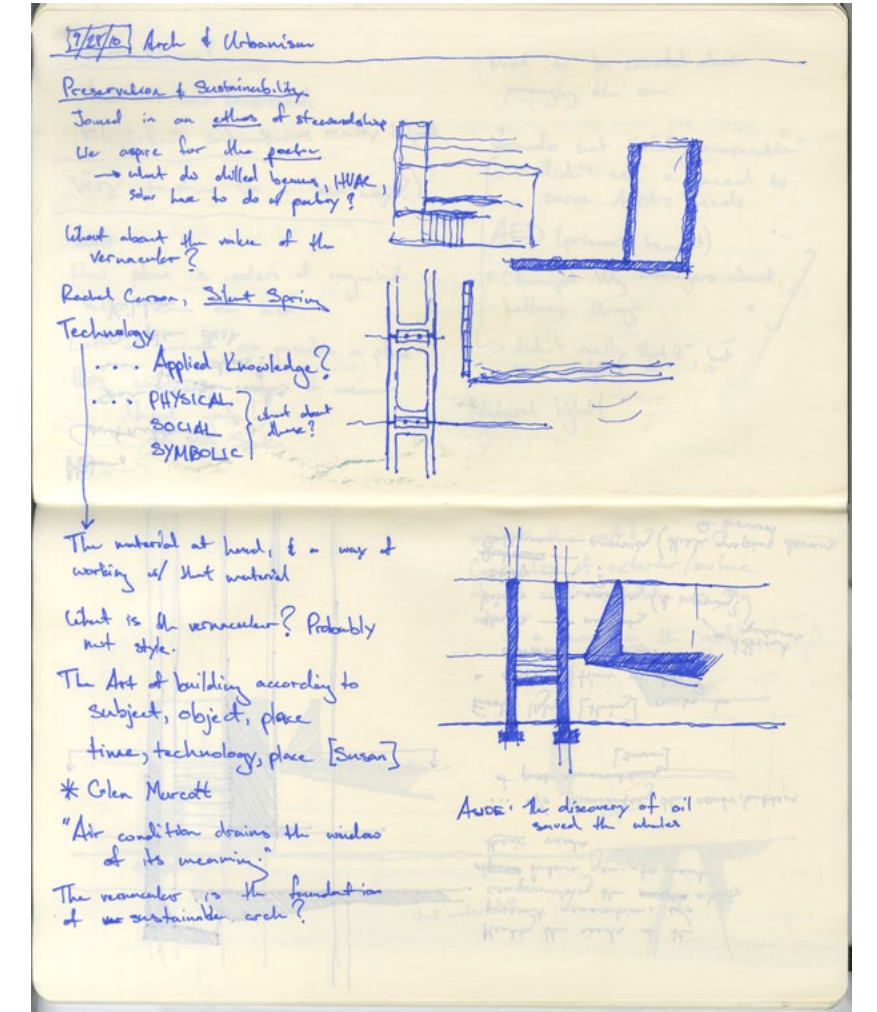 9/28/10 Arch & Urbanism
Preservation & Sustainability
Joined in an ethos of stewardship
We aspire for the poetic
→ what do chilled beams, HVAC,
solar have to do w/ poetry?
What about the value of the
vernacular?
Rachel Carson, Silent Spring
Technology
.... Applied Knowledge?
... PHYSICAL
SOCIAL
SYMBOLIC
what about
these?
The material at hand, & a way of
working w/ that material
What is the vernacular? Probably
not style.
The Art of building according to
subject, object, place
time, technology, place [Susan]
* Glen Murcott
"Air condition drains the window
of its meaning."
The vernacular is the foundation
of sustainable arch?
: the discovery of oil
saved the whales